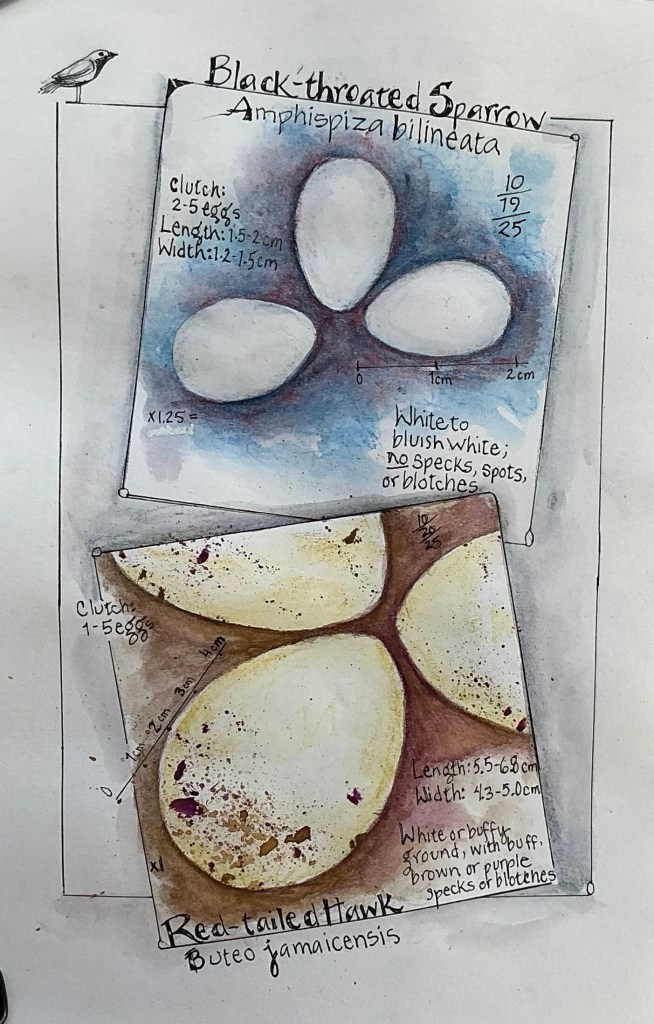 Black-throated Sparrow
Amphispiza bilineata
Clutch:
2-5 eggs
Length: 1.5-2cm
Width: 1.2-1.5cm
10
19
25
0 1cm 2cm
x1.25 =
White to
bluish white;
no specks, spots,
or blotches
10
20
25
Clutch:
1-5 eggs
0 1cm 2cm 3cm 4cm
Length: 5.5-6.8cm
Width: 4.3-5.0cm
White or buffy
ground, with buff,
brown or purple
specks or blotches
x1
Red-tailed Hawk
Buteo jamaicensis